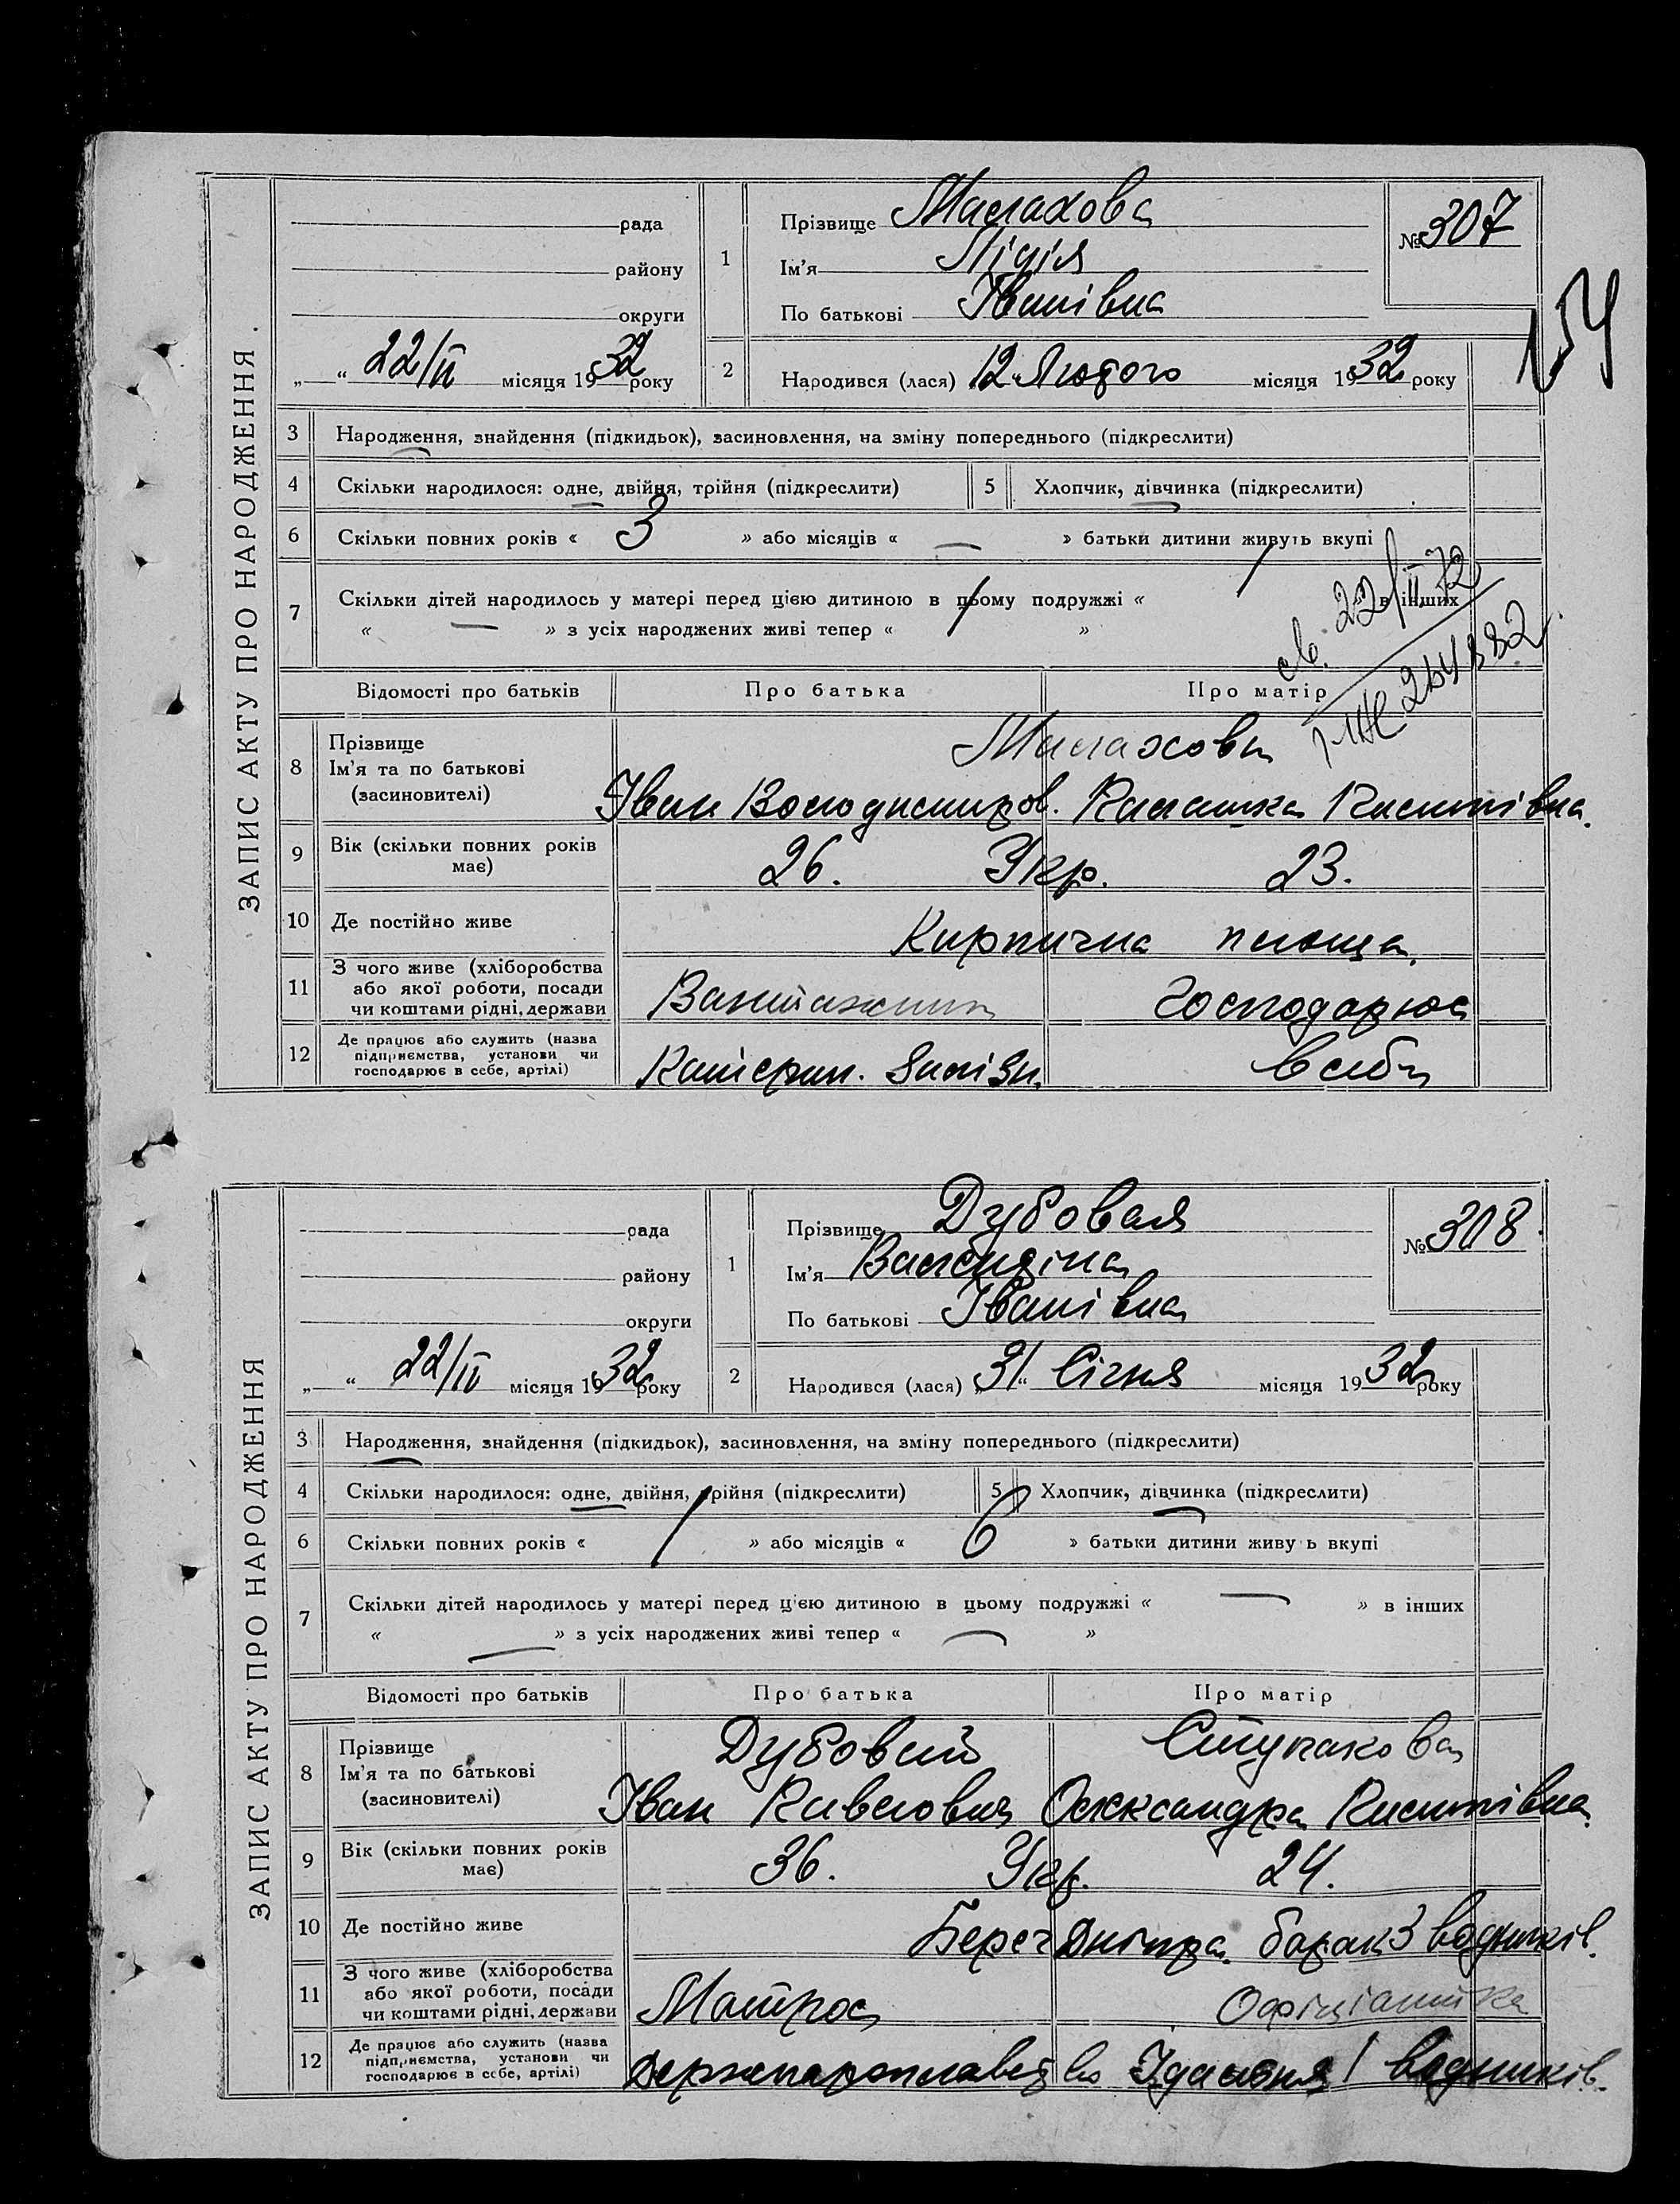 ЗАПИС АКТУ ПРО НАРОДЖЕННЯ.
рада
району
округи
„ “ 22/II місяця 1932 року
1
Прізвище Малахова
Ім'я Лідія
По батькові Іванівна
№ 307
154
2 Народився (лася) 12 Лютого місяця 1932 року
3 Народження, знайдення (підкидьок), засиновлення, на зміну попереднього (підкреслити)
4 Скільки народилося: одне, двійня, трійня (підкреслити) 5 Хлопчик, дівчинка (підкреслити)
6 Скільки повних років « 3 » або місяців « — » батьки дитини живуть вкупі
7 Скільки дітей народилось у матері перед цією дитиною в цьому подружжі « 1 » в інших
« — » з усіх народжених живі тепер « 1 »
св. 22/II 72
Відомості про батьків Про батька Про матір
8 Прізвище
Ім'я та по батькові
(засновителі)
Малахови
Іван Володимиров. Килитівна
9 Вік (скільки повних років має) 26. Укр. 23.
10 Де постійно живе Кирпична площа.
11 З чого живе (хліборобства або якої роботи, посади чи коштами рідні, держави Вантажник Господарює
12 Де працює або служить (назва підприємства, установи чи господарює в себе, артілі) Катерин. Залізн. в себе
ЗАПИС АКТУ ПРО НАРОДЖЕННЯ
рада
району
округи
„ “ 22/II місяця 1932 року
1
Прізвище Дубовая
Ім'я Валендіна
По батькові Іванівна
№ 308
2 Народився (лася) 31 Січня місяця 1932 року
3 Народження, знайдення (підкидьок), засиновлення, на зміну попереднього (підкреслити)
4 Скільки народилося: одне, двійня, трійня (підкреслити) 5 Хлопчик, дівчинка (підкреслити)
6 Скільки повних років « 1 » або місяців « 6 » батьки дитини живу ь вкупі
7 Скільки дітей народилось у матері перед цією дитиною в цьому подружжі « — » в інших
« — » з усіх народжених живі тепер « — »
Відомості про батьків Про батька Про матір
8 Прізвище
Ім'я та по батькові
(засиновителі)
Дубовий Ступакова
Іван Савелович Олександра
9 Вік (скільки повних років має) 36. Укр. 24.
10 Де постійно живе Берег Дніпра. барак 3 водників.
11 З чого живе (хліборобства або якої роботи, посади чи коштами рідні, держави Матрос Офіціантка
12 Де працює або служить (назва підприємства, установи чи господарює в себе, артілі) Держпароплавство Їдальня 1 водників.